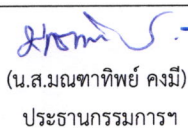 (น.ส.มณฑาทิพย์ คงมี)
ประธานกรรมการฯ